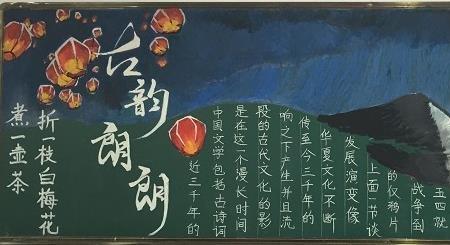 古韵朗朗
折一枝白梅花
煮一壶茶
近三千年的
中国文学包括古诗词
是在这个漫长时间
段的古代文化的影
响之下产生并且流
传至今三千年的
华夏文化不断
发展演变像
上面一节谈
的仅鸦片
战争到
五四就